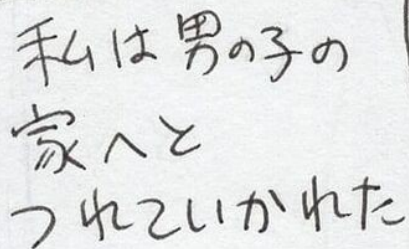 私は男の子の
家へと
つれていかれた